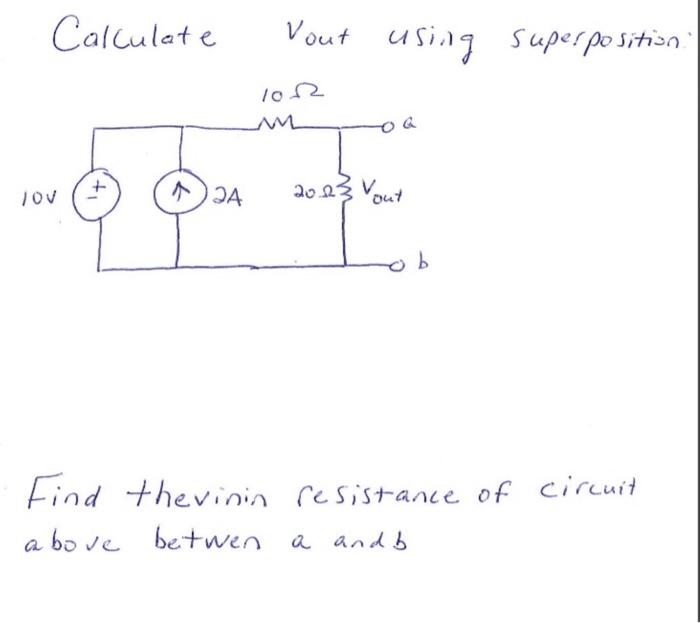 Calculate Vout using superposition:
10Ω
a
10V
+
-
2A
20Ω
Vout
b
Find thevinin resistance of circuit
above betwen a and b